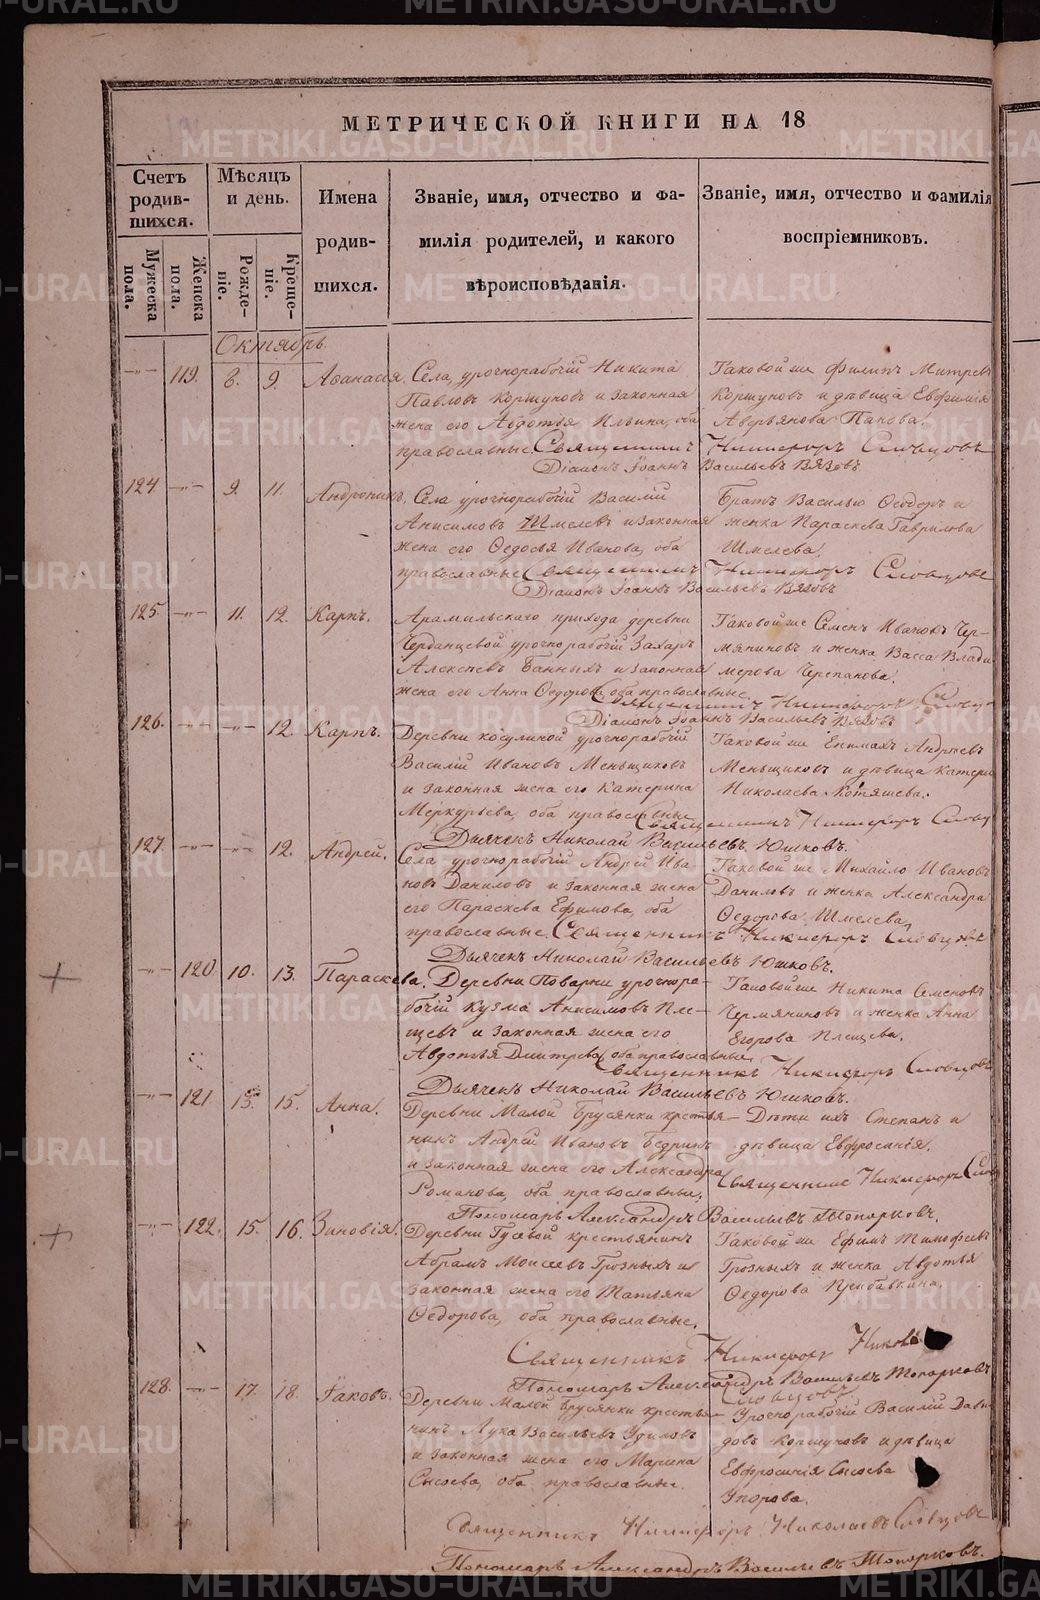 МЕТРИЧЕСКОЙ КНИГИ НА 18
Счетъ родив-шихся.
Мужеска пола.
Женска пола.
Мѣсяцъ и день.
Рожде-ніе.
Креще-ніе.
Имена родив-шихся.
Званіе, имя, отчество и фа-
милія родителей, и какого
вѣроисповѣданія.
Званіе, имя, отчество и фамилія
воспріемниковъ.
Октябрь
119. 8. 9. Аѳанасія.
Села, урочнорабочій Никита
Павловъ Коршуновъ и законная
жена его Авдотья Ильина, оба
православные
Таковой же Филипъ Митрев
Коршуновъ и дѣвица Евфимія
Аверьянова Панова.
Священникъ Никифоръ Словцовъ
Діаконъ Іоаннъ Васильевъ Вязовъ
124 9. 11. Андроникъ.
Села урочнорабочій Василій
Анисимовъ Шмелевъ и законная
жена его Ѳедосья Иванова, оба
православные
Братъ Василью Ѳедоръ и
женка Параскева Гаврилова
Шмелева.
Священникъ Никифоръ Словцовъ
Діаконъ Іоаннъ Васильевъ Вязовъ
125. 11. 12. Карпъ.
Арамильскаго прихода деревни
Черданцевой урочнорабочій Захаръ
Алексѣевъ Банныхъ и законная
жена его Анна Ѳедорова оба православные
Таковой же Семенъ Ивановъ Чер-
мяниновъ и женка Васса Влади
мерова Черепанова.
Священникъ Никифоръ Словцо
Діаконъ Іоаннъ Васильевъ Вязовъ
126. 12. Карпъ.
Деревни Косулиной урочнорабочій
Василій Ивановъ Меньщиковъ
и законная жена его Катерина
Меркурьева, оба православные
Таковой же Епимахъ Андреевъ
Меньщиковъ и дѣвица Катери
Николаева Котяшева.
Священникъ Никифоръ Словц
Дьячекъ Николай Васильевъ Юшковъ.
127. 12. Андрей.
Села урочнорабочій Андрей Ива
новъ Даниловъ и законная жена
его Параскева Ефимова, оба
православные.
Таковой же Михайло Ивановъ
Даниловъ и женка Александра
Ѳедорова Шмелева,
Священникъ Никифоръ Словцовъ
Дьячекъ Николай Васильевъ Юшковъ.
120 10. 13. Параскева.
Деревни Поварни урочнора-
бочій Кузма Анисимовъ Пле-
щевъ и законная жена его
Авдотья Дмитрева, оба православные
Таковой же Никита Семеновъ
Чермяниновъ и женка Анна
Егорова Плещева.
Священникъ Никифоръ Словцовъ
Дьячекъ Николай Васильевъ Юшковъ.
121. 13. 15. Анна.
Деревни Малой Брусянки крестья-
нинъ Андрей Ивановъ Бедринъ
и законная жена его Александра
Романова, оба православные,
Дѣти ихъ Степанъ и
дѣвица Евфросинія.
Священникъ Никифоръ Слов
Пономарь Александръ Васильевъ Топорковъ.
122. 15. 16. Зиновія.
Деревни Гусевой крестьянинъ
Абрамъ Моисеевъ Грозныхъ и
законная жена его Татьяна
Ѳедорова, оба православные.
Таковой же Ефимъ Тимофеевъ
Грозныхъ и женка Авдотья
Ѳедорова Прибавкина.
Священникъ Никифоръ Никола
Словцовъ
Пономарь Александръ Васильевъ Топорковъ
128. 17. 18. Іаковъ.
Деревни Малой Брусянки крестья-
нинъ Лука Васильевъ
и законная жена его Марина
Сысоева, оба православные.
Урочнорабочій Василій Давы
довъ Коршуновъ и дѣвица
Евфросинія Сысоева
Упорова.
Священникъ Никифоръ Николаевъ Словцовъ
Пономарь Александръ Васильевъ Топорковъ.
METRIKI.GASO-URAL.RU